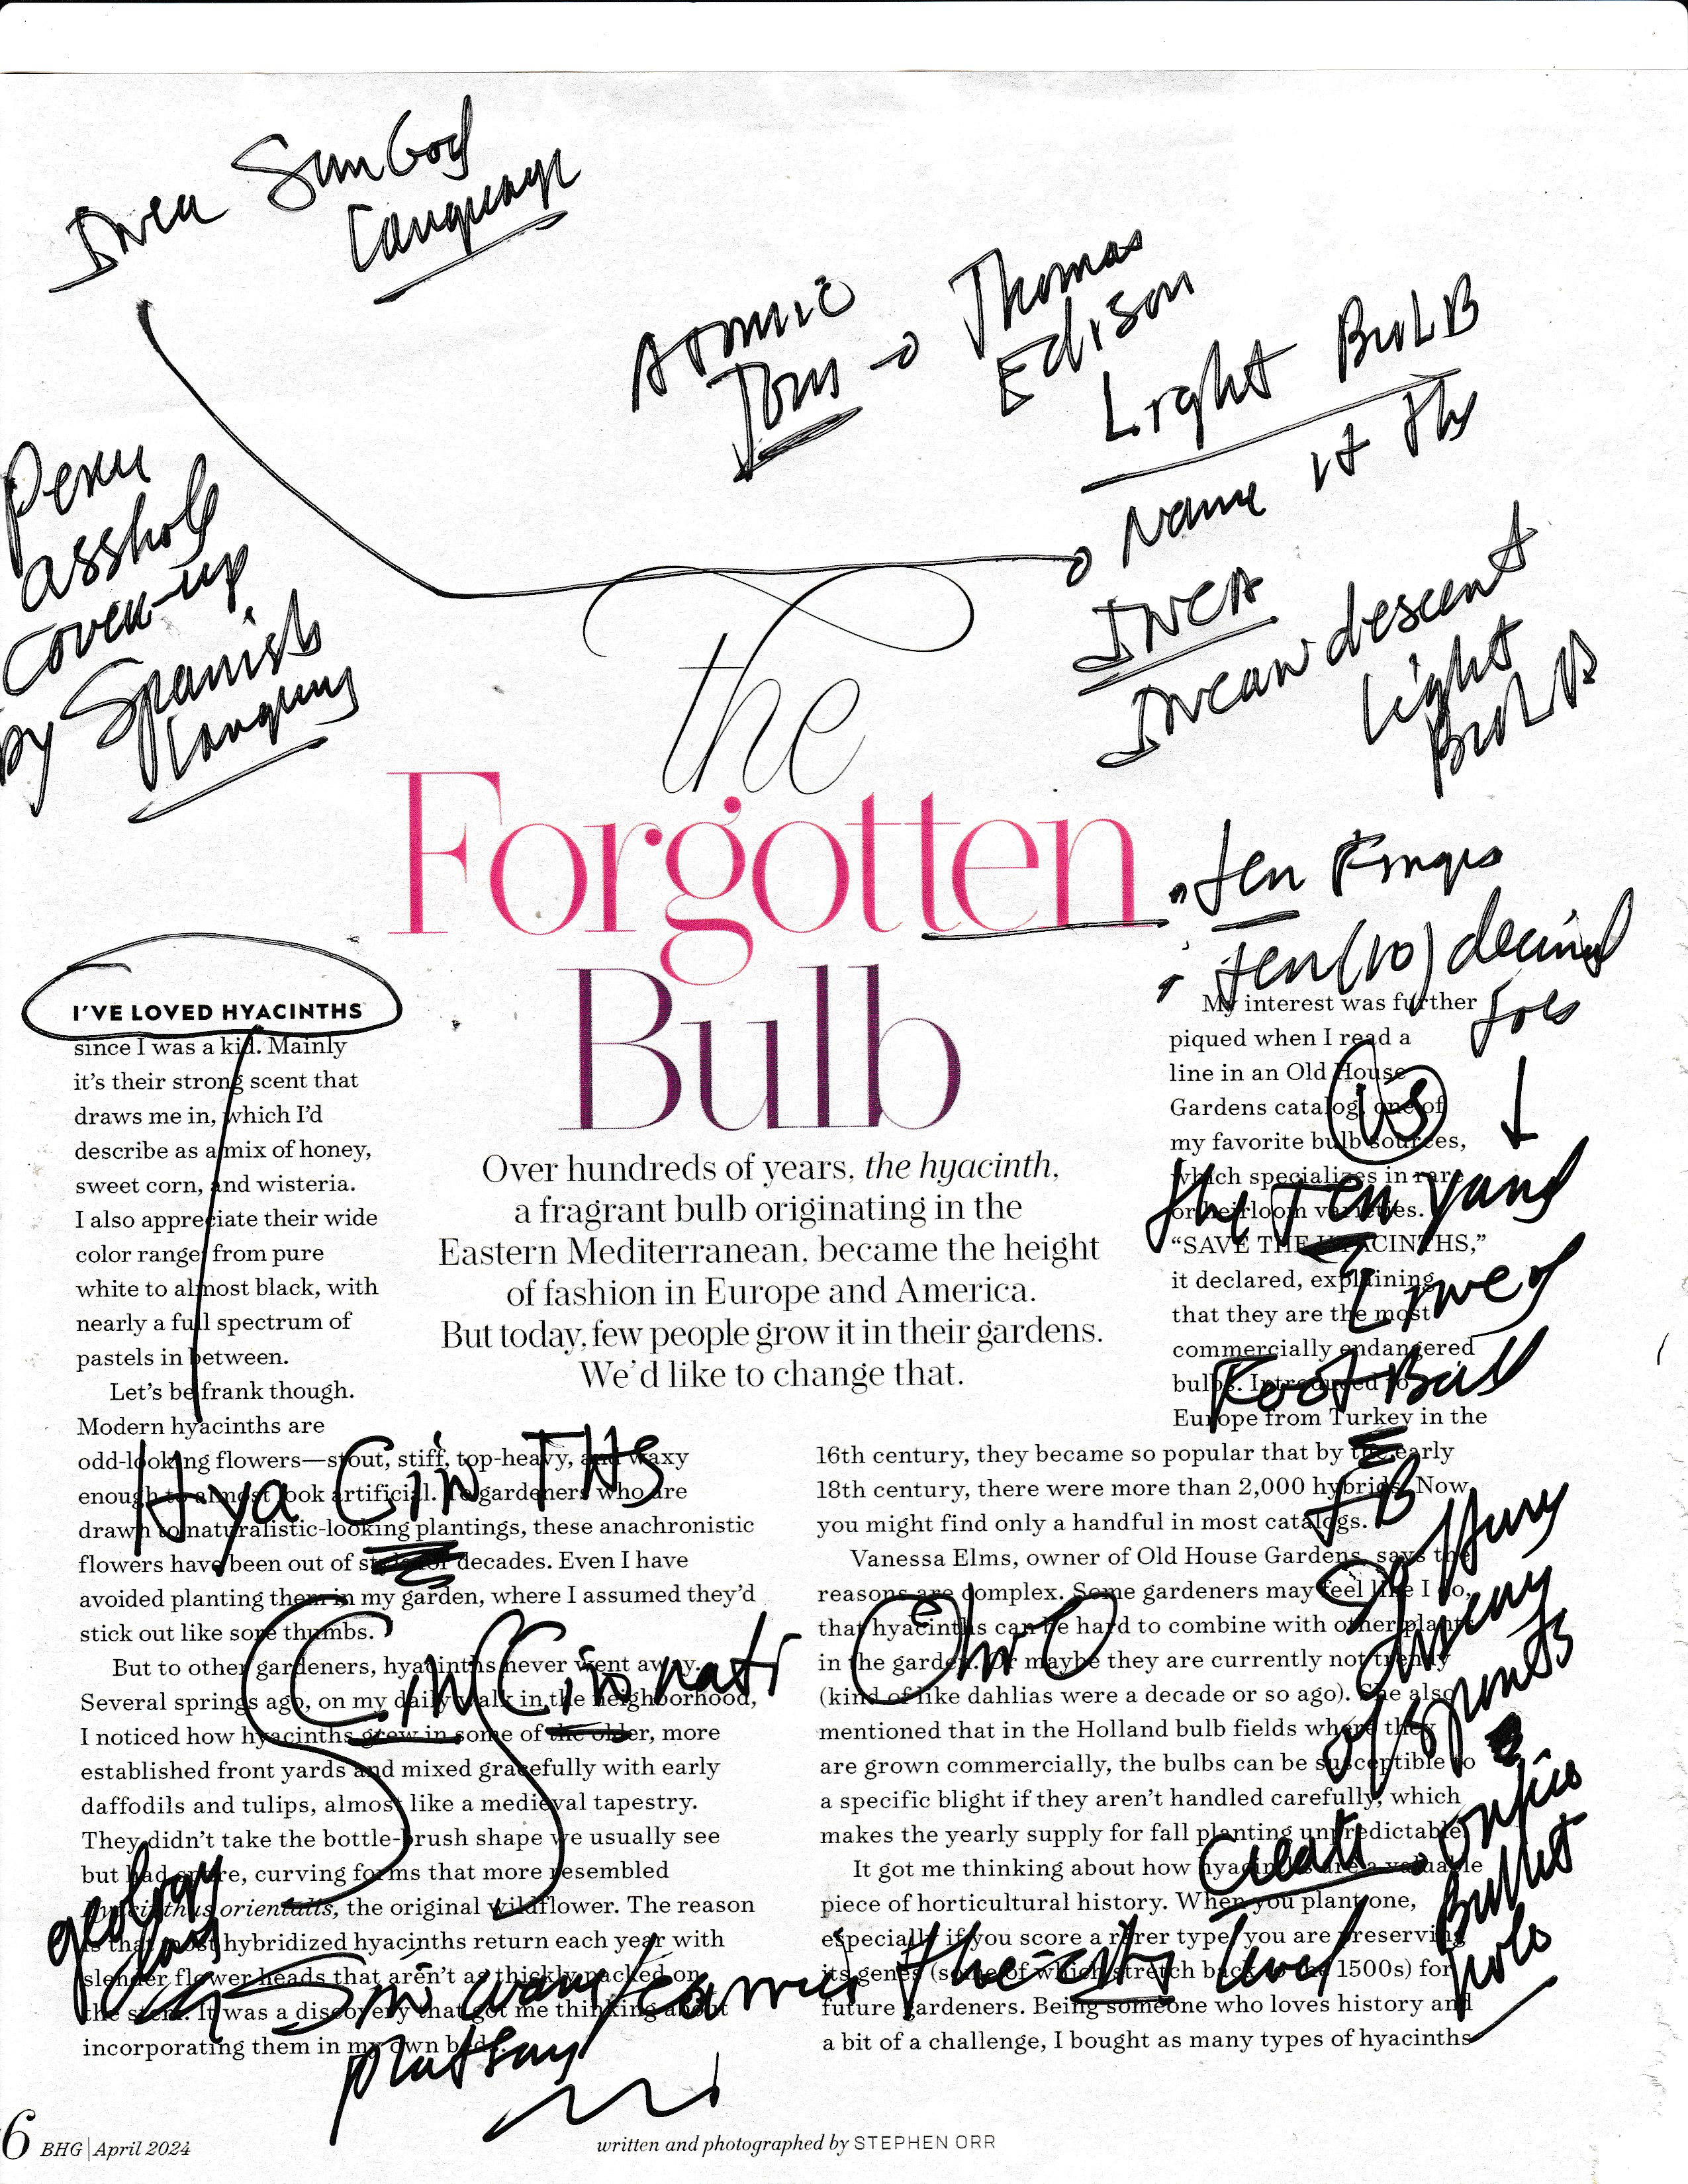 Inca Sun God
Language
Atomic
Toms → Thomas
Edison
Light BulB
Name it the
INCA
Incan descent
light
BulB
Peru
asshole
cover-up
by Spanish
language
the
Forgotten
Bulb
ten Fingers
ten (10) decimal
Over hundreds of years, the hyacinth,
a fragrant bulb originating in the
Eastern Mediterranean, became the height
of fashion in Europe and America.
But today, few people grow it in their gardens.
We'd like to change that.
I'VE LOVED HYACINTHS
since I was a kid. Mainly
it's their strong scent that
draws me in, which I'd
describe as a mix of honey,
sweet corn, and wisteria.
I also appreciate their wide
color range, from pure
white to almost black, with
nearly a full spectrum of
pastels in between.
Let's be frank though.
Modern hyacinths are
odd-looking flowers—stout, stiff, top-heavy, and waxy
enough to almost look artificial. To gardeners who are
drawn to naturalistic-looking plantings, these anachronistic
flowers have been out of style for decades. Even I have
avoided planting them in my garden, where I assumed they'd
stick out like sore thumbs.
But to other gardeners, hyacinths never went away.
Several springs ago, on my daily walk in the neighborhood,
I noticed how hyacinths grew in some of the older, more
established front yards and mixed gracefully with early
daffodils and tulips, almost like a medieval tapestry.
They didn't take the bottle-brush shape we usually see
but had spare, curving forms that more resembled
Hyacinthus orientalis, the original wildflower. The reason
is that most hybridized hyacinths return each year with
slender flower heads that aren't as thickly packed on
the stem. It was a discovery that got me thinking about
incorporating them in my own beds.
HyaCinTHs
CinCinnati Ohio
geology
My interest was further
piqued when I read a
line in an Old House
Gardens catalog, one of
my favorite bulb sources,
which specializes in rare
or heirloom varieties.
"SAVE THE HYACINTHS,"
it declared, explaining
that they are the most
commercially endangered
bulbs. Introduced to
Europe from Turkey in the
16th century, they became so popular that by the early
18th century, there were more than 2,000 hybrids. Now
you might find only a handful in most catalogs.
Vanessa Elms, owner of Old House Gardens, says the
reasons are complex. Some gardeners may feel like I do,
that hyacinths can be hard to combine with other plants
in the garden. Or maybe they are currently not trendy
(kind of like dahlias were a decade or so ago). She also
mentioned that in the Holland bulb fields where they
are grown commercially, the bulbs can be susceptible to
a specific blight if they aren't handled carefully, which
makes the yearly supply for fall planting unpredictable.
It got me thinking about how hyacinths are a valuable
piece of horticultural history. When you plant one,
especially if you score a rarer type, you are preserving
its genes (some of which stretch back to the 1500s) for
future gardeners. Being someone who loves history and
a bit of a challenge, I bought as many types of hyacinths
is
the Ten yard
Line of
FootBall
FB
Create
Bullet
hole
6 BHG | April 2024
written and photographed by STEPHEN ORR